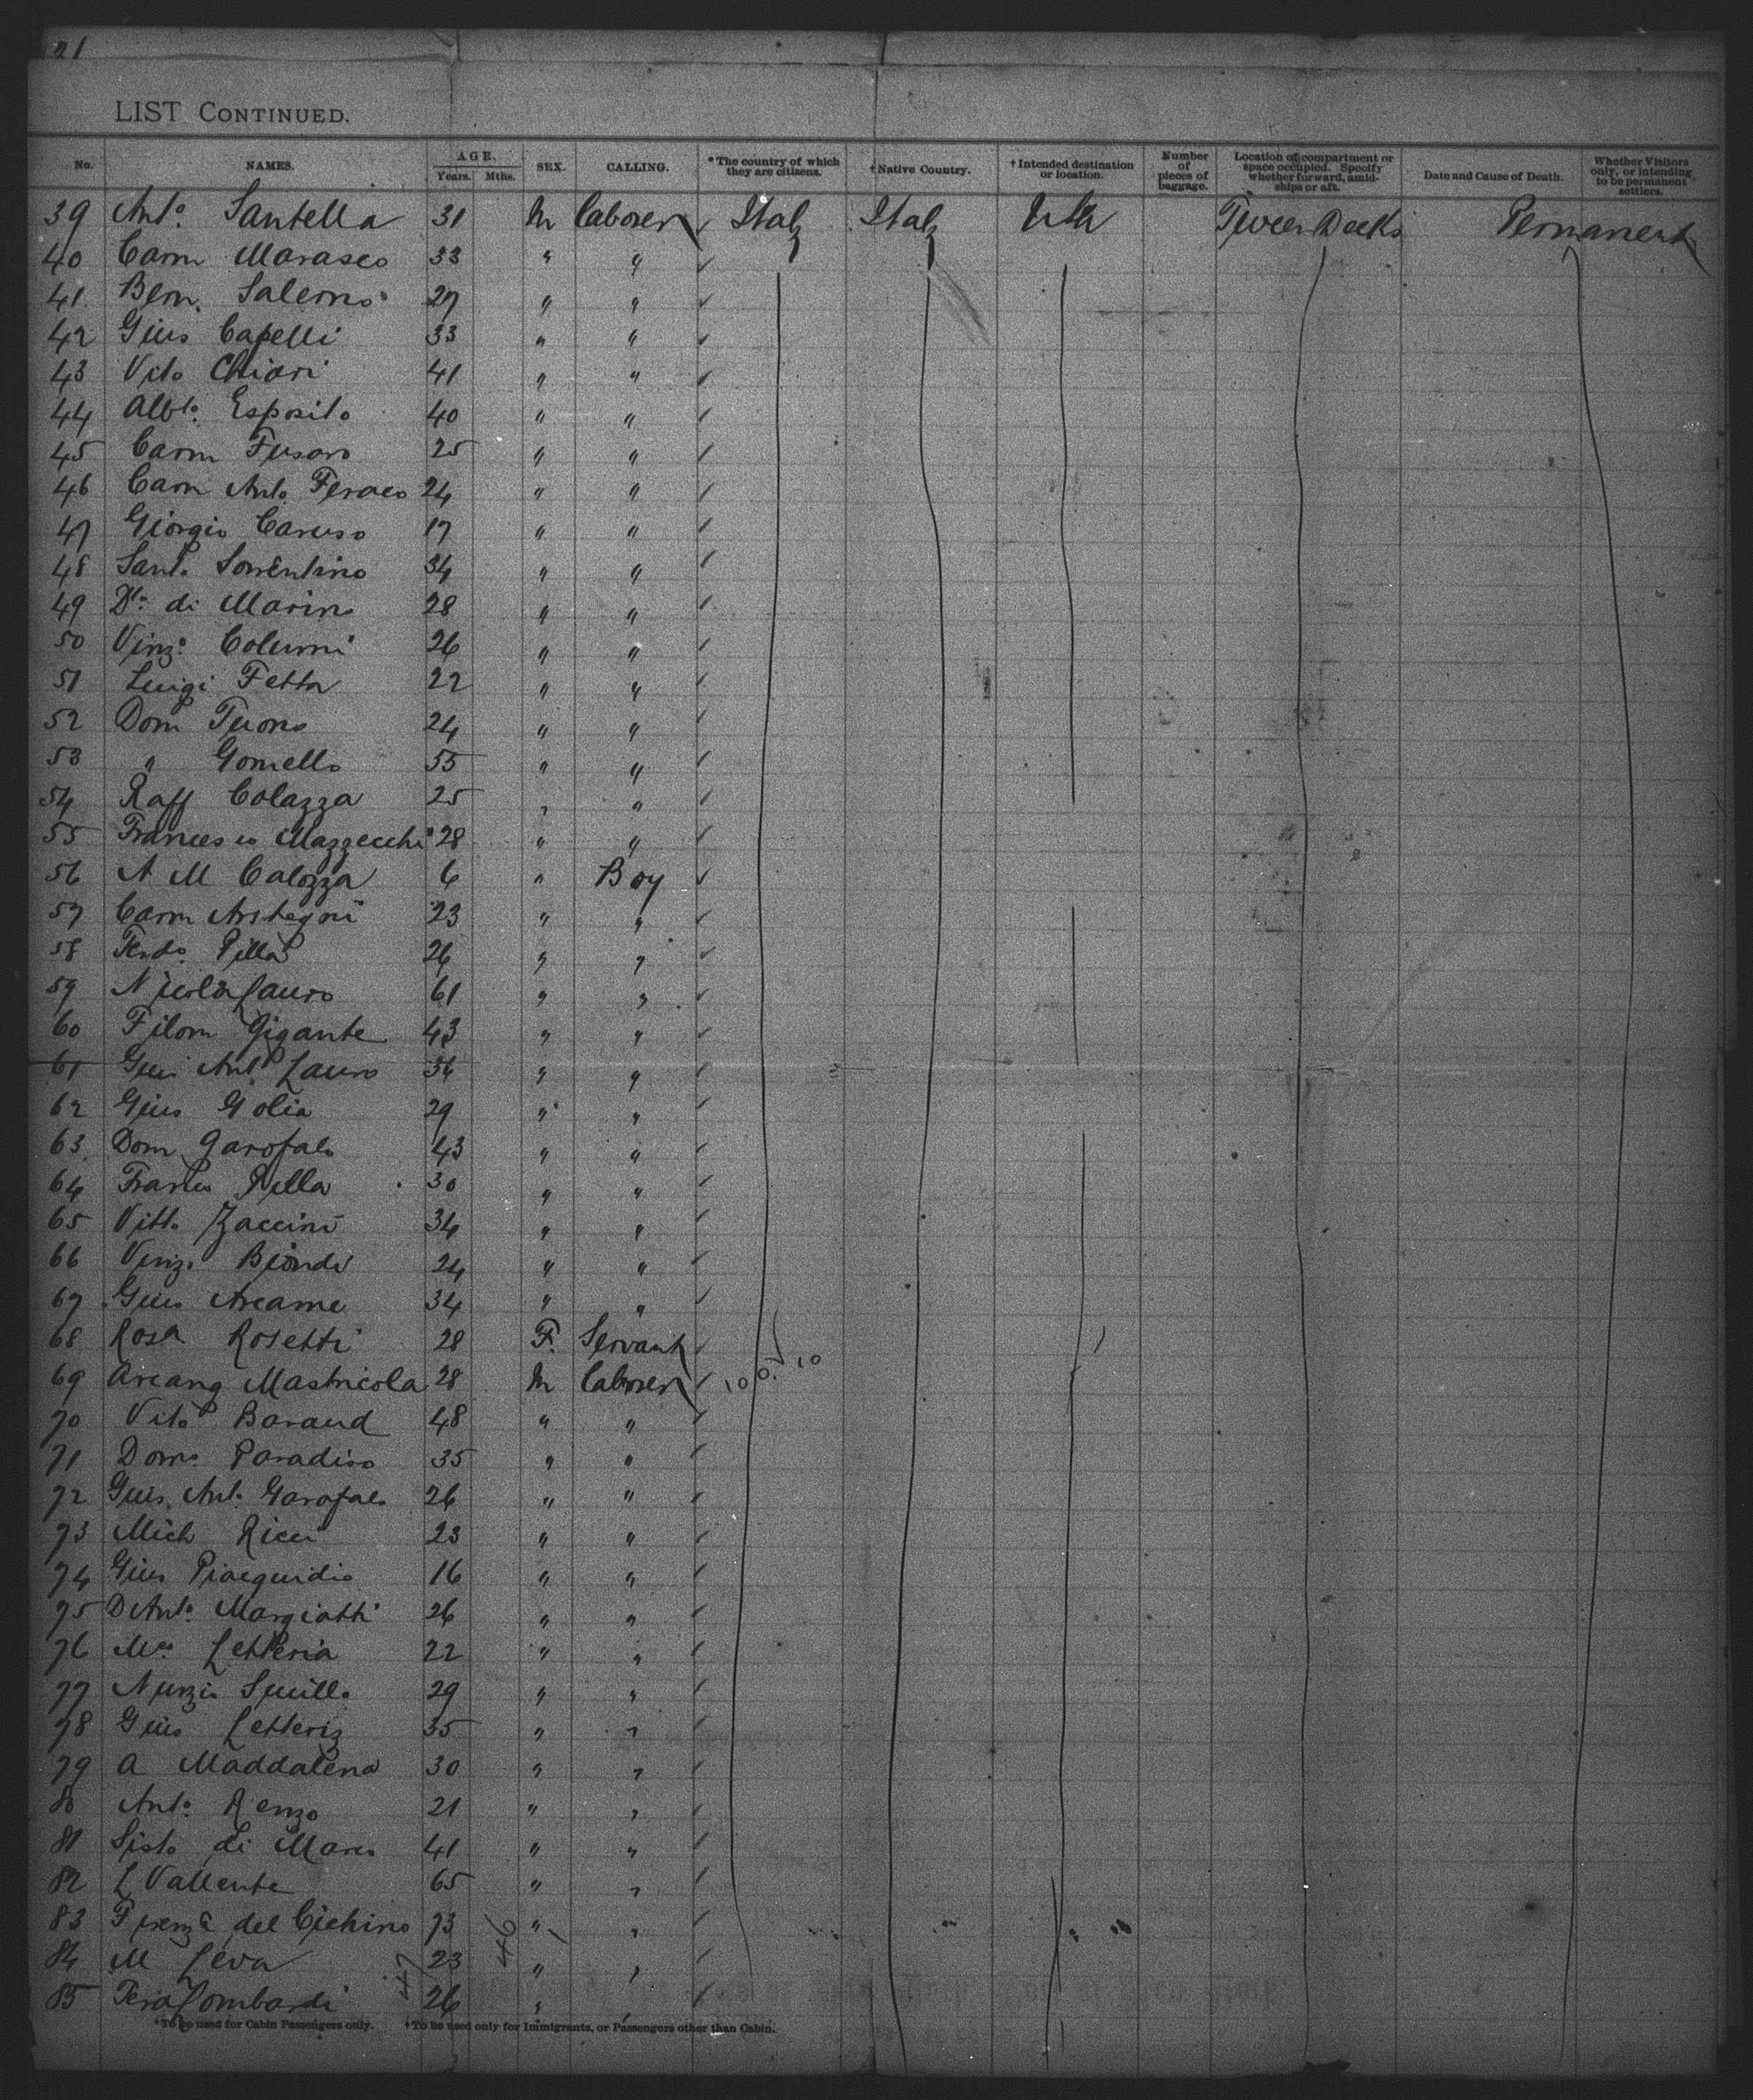 21
LIST CONTINUED.
No. NAMES. AGE. Years. Mths. SEX. CALLING. *The country of which they are citizens. †Native Country. †Intended destination or location. Number of pieces of baggage. Location of compartment or space occupied. Specify whether forward, amidships or aft. Date and Cause of Death. Whether Visitors only, or intending to be permanent settlers.
39 Anto. Santella 31 M Laborer ✓ Italy Italy USA Tween Decks Permanent
40 Carm Marasco 33 " " ✓
41. Ben. Salerno 27 " " ✓
42 Gius Capelli 33 " " ✓
43 Vito Chiari 41 " " ✓
44 Albto. Esposito 40 " " ✓
45 Carm Fusaro 25 " " ✓
46 Carm Anto Feraco 24 " " ✓
47 Giorgio Caruso 17 " " ✓
48 Santo Sorrentino 34 " " ✓
49 Dto. di Marino 28 " " ✓
50 Vinzo. Columi 26 " " ✓
51 Luigi Fetta 22 " " ✓
52 Dom Tuono 24 " " ✓
53 " Gomello 55 " " ✓
54 Raff Colazza 25 " " ✓
55 Francesco Mazzecchi 28 " " ✓
56 A M Calozza 6 " Boy ✓
57 Carm Astegni 23 " " ✓
58 Ferdo. Pilla 26 " " ✓
59 Nicola Lauro 61 " " ✓
60 Filom Gigante 43 " " ✓
61 Gius Anto Lauro 36 " " ✓
62 Gius Golia 29 " " ✓
63. Dom Garofalo 43 " " ✓
64 Franco Pilla 30 " " ✓
65 Vitto Zaccini 34 " " ✓
66 Vinzo Biondi 24 " " ✓
67 Gius Arcame 34 " " ✓
68 Rosa Rosetti 28 F. Servant ✓
69 Arcang Mastricola 28 M Laborer ✓ 10 0. 10
70 Vito Baraud 48 " " ✓
71 Domo. Paradiso 35 " " ✓
72 Gius. Anto. Garofalo 26 " " ✓
73 Mich Ricci 23 " " ✓
74 Gius Piacquidio 16 " " ✓
75 D Anto. Margiotti 26 " " ✓
76 Ma. Letteria 22 " " ✓
77 Nunzio Sucillo 29 " " ✓
78 Gius Letteriz 35 " " ✓
79 A Maddalena 30 " " ✓
80 Anto. Renzo 21 " " ✓
81 Sisto di Marco 41 " " ✓
82 L Vallente 65 " " ✓
83 del Cichino 73 46 " " ✓
84 M Leva 47 23 " " ✓
85 Lombardi 26 " " ✓
*To be used for Cabin Passengers only. †To be used only for Immigrants, or Passengers other than Cabin.